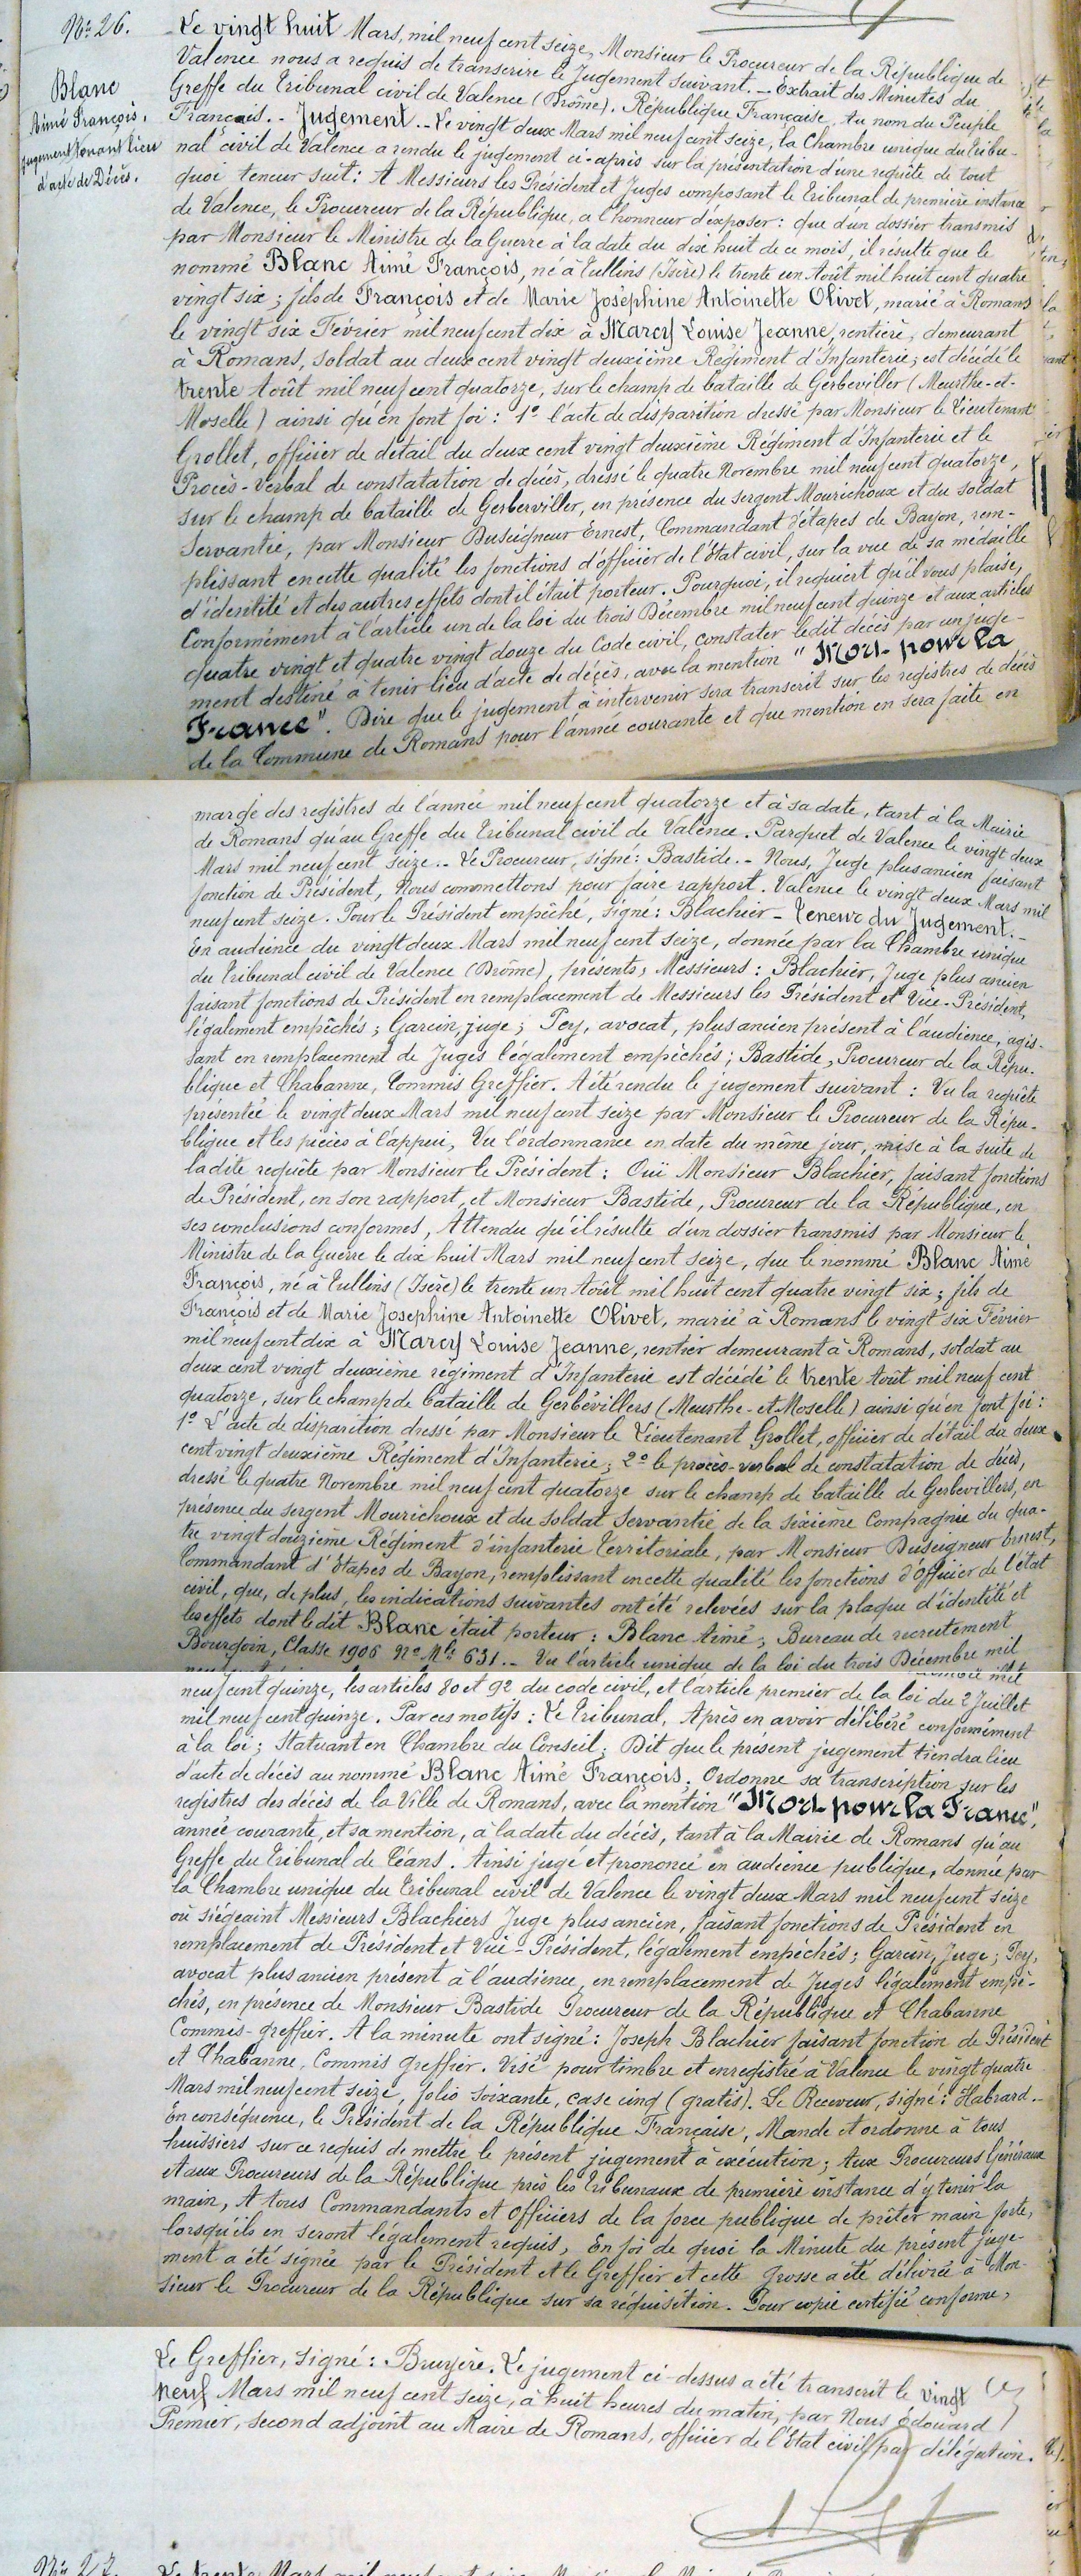 No. 26.
Blanc
Aimé François.
jugement tenant lieu
d'acte de Décès.
Le vingt huit Mars, mil neuf cent seize, Monsieur le Procureur de la République de
Valence nous a requis de transcrire le Jugement suivant. _ Extrait des Minutes du
Greffe du Tribunal civil de Valence (Drôme). République Française. Au nom du Peuple
Français. - Jugement. - Le vingt deux Mars mil neuf cent seize, la Chambre unique du Tribu-
nal civil de Valence a rendu le jugement ci-après sur la présentation d'une requête de tout
quoi teneur suit: A Messieurs les Président et Juges composant le Tribunal de première instance
de Valence, le Procureur de la République, a l'honneur d'exposer: que d'un dossier transmis
par Monsieur le Ministre de la Guerre à la date du dix huit de ce mois, il résulte que le
nommé Blanc Aimé François, né à Tullins (Isère) le trente un Août mil huit cent quatre
vingt six; fils de François et de Marie Joséphine Antoinette Olivet, marié à Romans
le vingt six Février mil neuf cent dix à Marcy Louise Jeanne, rentière, demeurant
à Romans, soldat au deux cent vingt deuxième Régiment d'Infanterie; est décédé le
trente Août mil neuf cent quatorze, sur le champ de bataille de Gerbéviller (Meurthe-et-
Moselle) ainsi qu'en font foi: 1º l'acte de disparition dressé par Monsieur le Lieutenant
Grollet, officier de détail du deux cent vingt deuxième Régiment d'Infanterie et le
Procès-Verbal de constatation de décès, dressé le quatre Novembre mil neuf cent quatorze,
sur le champ de bataille de Gerberviller, en présence du sergent Mourichoux et du soldat
Servantie, par Monsieur Duseigneur Ernest, Commandant d'étapes de Bayon, rem-
plissant en cette qualité les fonctions d'officier de l'Etat civil, sur la vue de sa médaille
d'identité et des autres effets dont il était porteur. Pourquoi, il requiert qu'il vous plaise,
Conformément à l'article un de la loi du trois Décembre mil neuf cent quinze et aux articles
quatre vingt et quatre vingt douze du Code civil, constater ledit décès par un juge-
ment destiné à tenir lieu d'acte de décès, avec la mention "Mort pour la
France". Dire que le jugement à intervenir sera transcrit sur les registres de décès
de la Commune de Romans pour l'année courante et que mention en sera faite en
marge des registres de l'année mil neuf cent quatorze et à sa date, tant à la Mairie
de Romans qu'au Greffe du Tribunal civil de Valence. Parquet de Valence le vingt deux
Mars mil neuf cent seize. - Le Procureur, signé: Bastide. - Nous, Juge plus ancien faisant
fonction de Président, Nous commettons pour faire rapport. Valence le vingt deux Mars mil
neuf cent seize. Pour le Président empêché, signé: Blachier - Teneur du Jugement. -
En audience du vingt deux Mars mil neuf cent seize, donnée par la Chambre unique
du Tribunal civil de Valence (Drôme), présents, Messieurs: Blachier, Juge plus ancien
faisant fonctions de Président en remplacement de Messieurs les Président et Vice-Président,
légalement empêchés; Garcin, juge; Pey, avocat, plus ancien présent à l'audience, agis-
sant en remplacement de Juges légalement empêchés; Bastide, Procureur de la Répu-
blique et Chabanne, Commis Greffier. A été rendu le jugement suivant: Vu la requête
présentée le vingt deux Mars mil neuf cent seize par Monsieur le Procureur de la Répu-
blique et les pièces à l'appui, Vu l'ordonnance en date du même jour, mise à la suite de
ladite requête par Monsieur le Président: Ouï Monsieur Blachier, faisant fonctions
de Président, en son rapport, et Monsieur Bastide, Procureur de la République, en
ses conclusions conformes, Attendu qu'il résulte d'un dossier transmis par Monsieur le
Ministre de la Guerre le dix huit Mars mil neuf cent seize, que le nommé Blanc Aimé
François, né à Tullins (Isère) le trente un Août mil huit cent quatre vingt six; fils de
François et de Marie Josephine Antoinette Olivet, marié à Romans le vingt six Février
mil neuf cent dix à Marcy Louise Jeanne, rentier demeurant à Romans, soldat au
deux cent vingt deuxième régiment d'Infanterie est décédé le trente Août mil neuf cent
quatorze, sur le champ de bataille de Gerbévillers (Meurthe-et-Moselle) ainsi qu'en font foi:
1º L'acte de disparition dressé par Monsieur le Lieutenant Grollet, officier de détail du deux
cent vingt deuxième Régiment d'Infanterie; 2º le procès-verbal de constatation de décès,
dressé le quatre Novembre mil neuf cent quatorze sur le champ de bataille de Gerbevillers, en
présence du sergent Mourichoux et du soldat Servantie, de la sixième Compagnie du qua-
tre vingt douzième Régiment d'infanterie Territoriale, par Monsieur Duseigneur Ernest,
Commandant d'Etapes de Bayon, remplissant en cette qualité les fonctions d'Officier de l'état
civil, que, de plus, les indications suivantes ont été relevées sur la plaque d'identité et
les effets dont ledit Blanc était porteur: Blanc Aimé; Bureau de recrutement
Bourgoin, Classe 1906 No Mle 631. - Vu l'article unique de la loi du trois Décembre mil
neuf cent quinze, les articles 80 et 92 du code civil, et l'article premier de la loi du 2 Juillet
mil neuf cent quinze. Par ces motifs: Le Tribunal, Après en avoir délibéré conformément
à la loi; Statuant en Chambre du Conseil; Dit que le présent jugement tiendra lieu
d'acte de décès au nommé Blanc Aimé François. Ordonne sa transcription sur les
registres des décès de la Ville de Romans, avec la mention "Mort pour la France",
année courante, et sa mention, à la date du décès, tant à la Mairie de Romans qu'au
Greffe du Tribunal de Céans. Ainsi jugé et prononcé en audience publique, donnée par
la Chambre unique du Tribunal civil de Valence le vingt deux Mars mil neuf cent seize
où siégeaint Messieurs Blachiers Juge plus ancien, faisant fonctions de Président en
remplacement de Président et Vice-Président, légalement empêchés; Garcin, Juge; Pey,
avocat plus ancien présent à l'audience, en remplacement de Juges légalement empê-
chés, en présence de Monsieur Bastide Procureur de la République et Chabanne
Commis-greffier. A la minute ont signé: Joseph Blachier faisant fonction de Président
et Chabanne, Commis greffier. Visé pour timbre et enregistré à Valence le vingt quatre
Mars mil neuf cent seize, folio soixante, case cinq (gratis). Le Receveur, signé: Habrard. -
En conséquence, le Président de la République Française, Mande et ordonne à tous
huissiers sur ce requis de mettre le présent jugement à exécution; Aux Procureurs Généraux
et aux Procureurs de la République près les Tribunaux de première instance d'y tenir la
main, A tous Commandants et Officiers de la force publique de prêter main forte,
lorsqu'ils en seront légalement requis, En foi de quoi la Minute du présent juge-
ment a été signée par le Président et le Greffier et cette grosse a été délivrée à Mon-
sieur le Procureur de la République sur sa réquisition. Pour copie certifié conforme,
Le Greffier, signé: Bruyère. Le jugement ci-dessus a été transcrit le vingt
neuf Mars mil neuf cent seize, à huit heures du matin, par Nous Edouard
Premier, second adjoint au Maire de Romans, officier de l'Etat civil par délégation.
No. 27.
Le trente Mars mil neuf cent seize